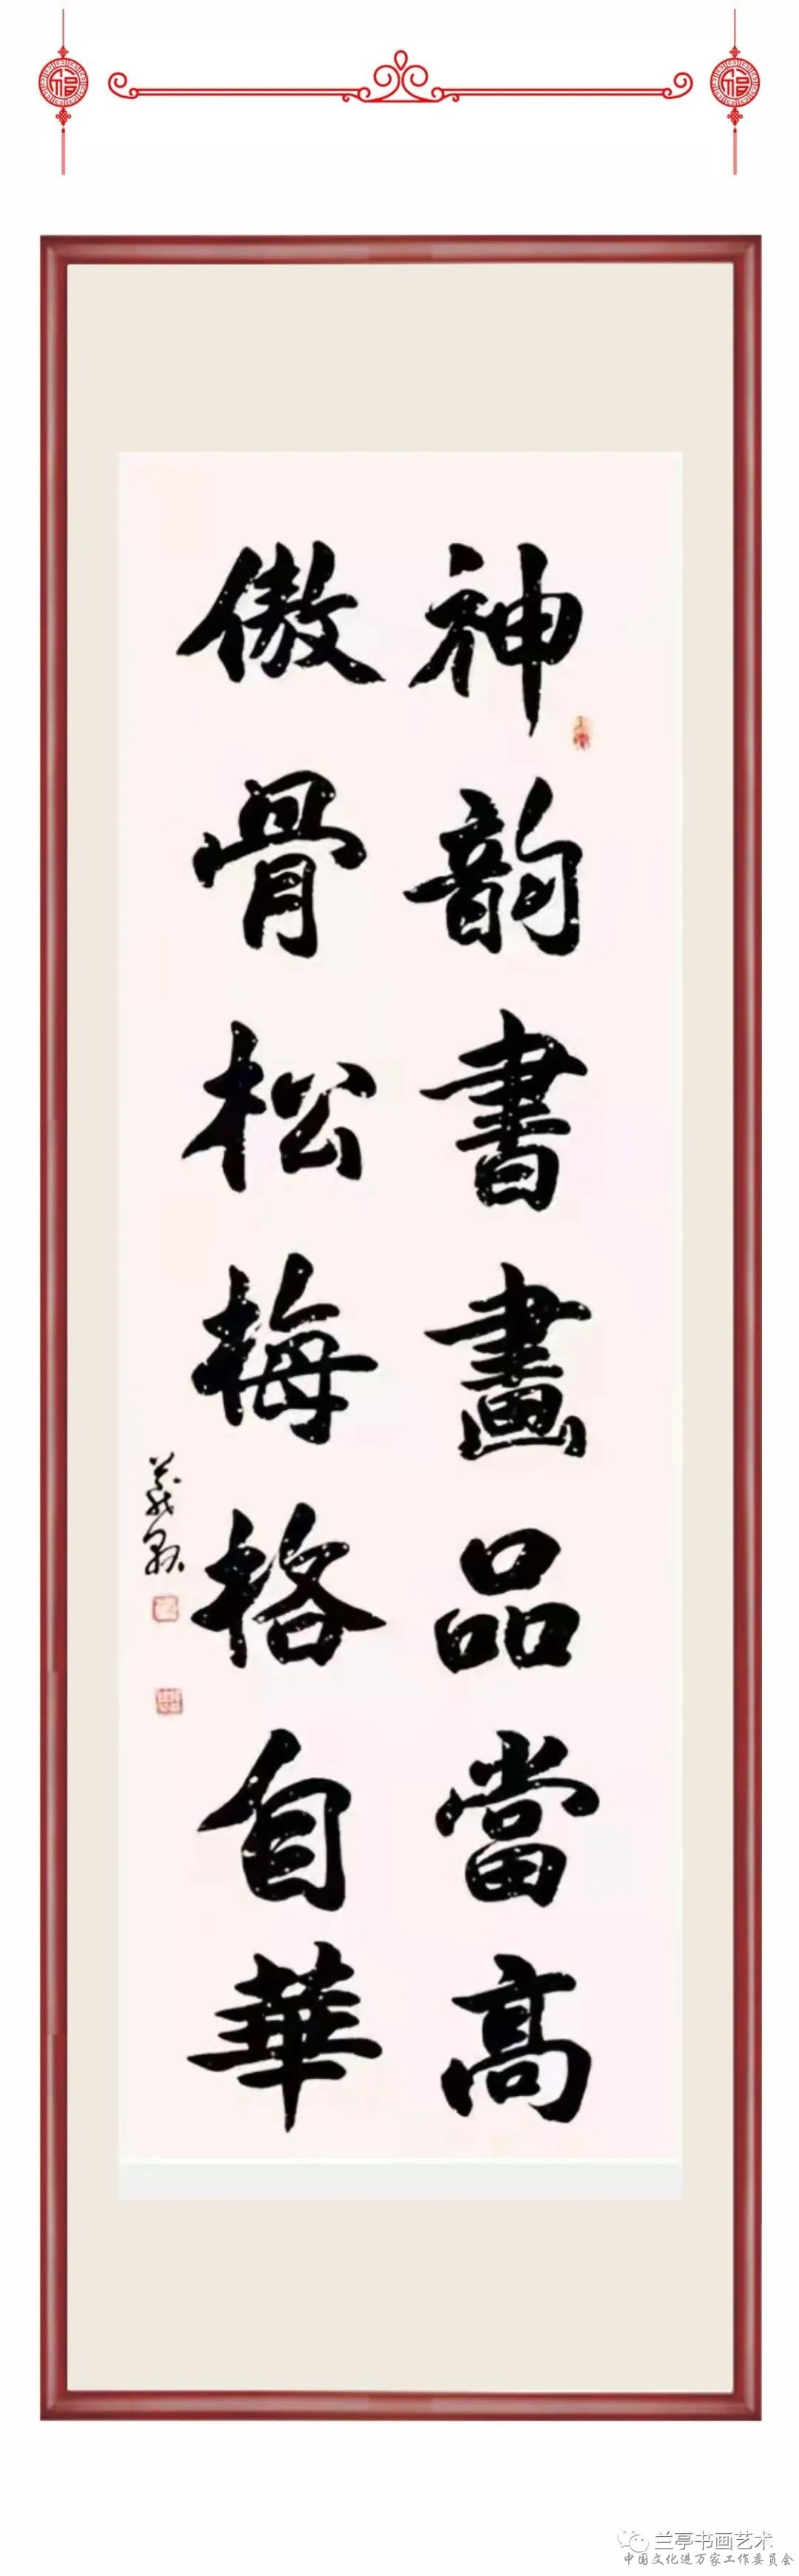 福
福
神韵書畫品當高
傲骨松梅格自華
兰亭书画艺术
中国文化进万家工作委员会